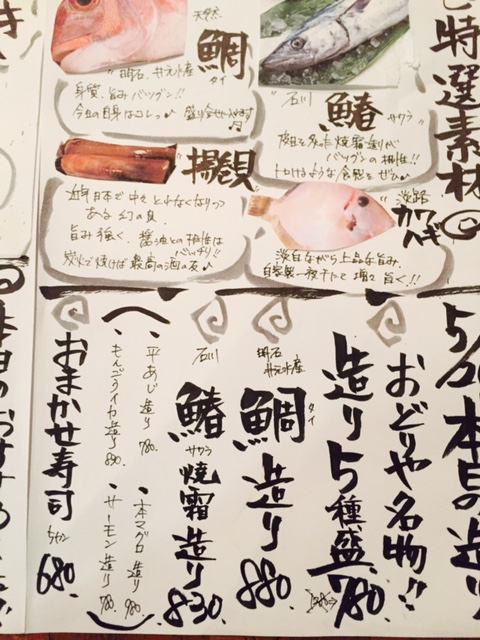 特選素材
天然
鯛
タイ
明石
身質、旨みバツグン!!
石川
鰆
サワラ
皮目を炙った焼霜造りが
バツグンの相性!!
トロけるような食感をぜひ♪
揚貝
近年日本で中々とれなくなりつつ
ある幻の貝
旨み強く、醤油との相性は
バッチリ!!
炭火で焼けば最高の酒の友♪
淡路
カワハギ
淡白ながら上品な旨み、
自家製一夜干しで増々旨く!!
本日の造り
おどりや名物!!
造り5種盛 780.
明石
鯛 造り 880.
タイ
石川
鰆 焼霜造り 830.
サワラ
・平あじ造り 780.
・本マグロ造り 980.
・もんごうイカ造り 690.
・サーモン造り 780.
おまかせ寿司 680.
本日のおすすめ